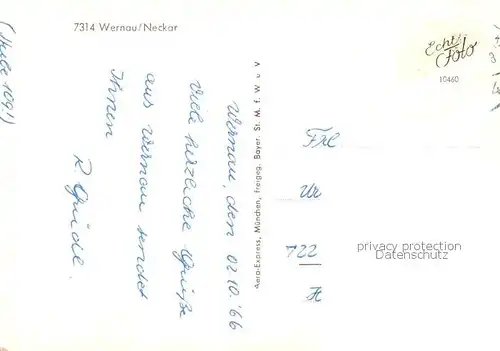 7314 Wernau/Neckar
Echt
Foto
10460
Wernau, den 02.10.'66
Viele herzliche Grüße
aus Wernau sendet
Ihnen
Aero-Express, München, Freigeg. Bayer. St. M. f. W u V
Frl
Ur
722
privacy protection
Datenschutz